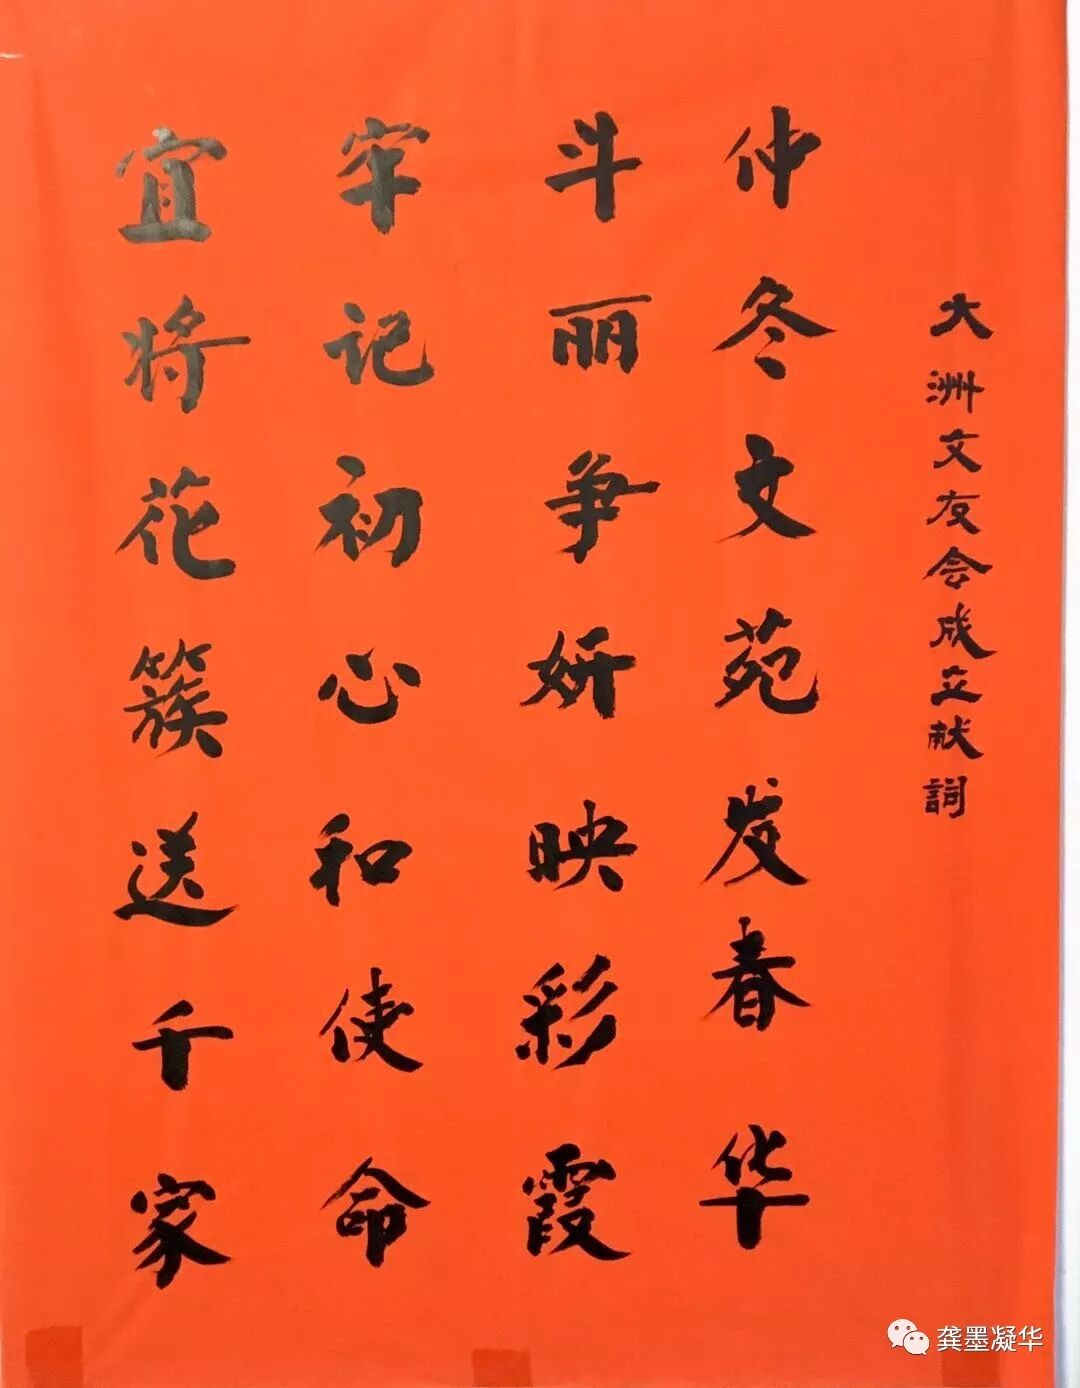 大洲文友会成立献詞
仲冬文苑发春华
斗丽争妍映彩霞
牢记初心和使命
宜将花簇送千家
龚墨凝华